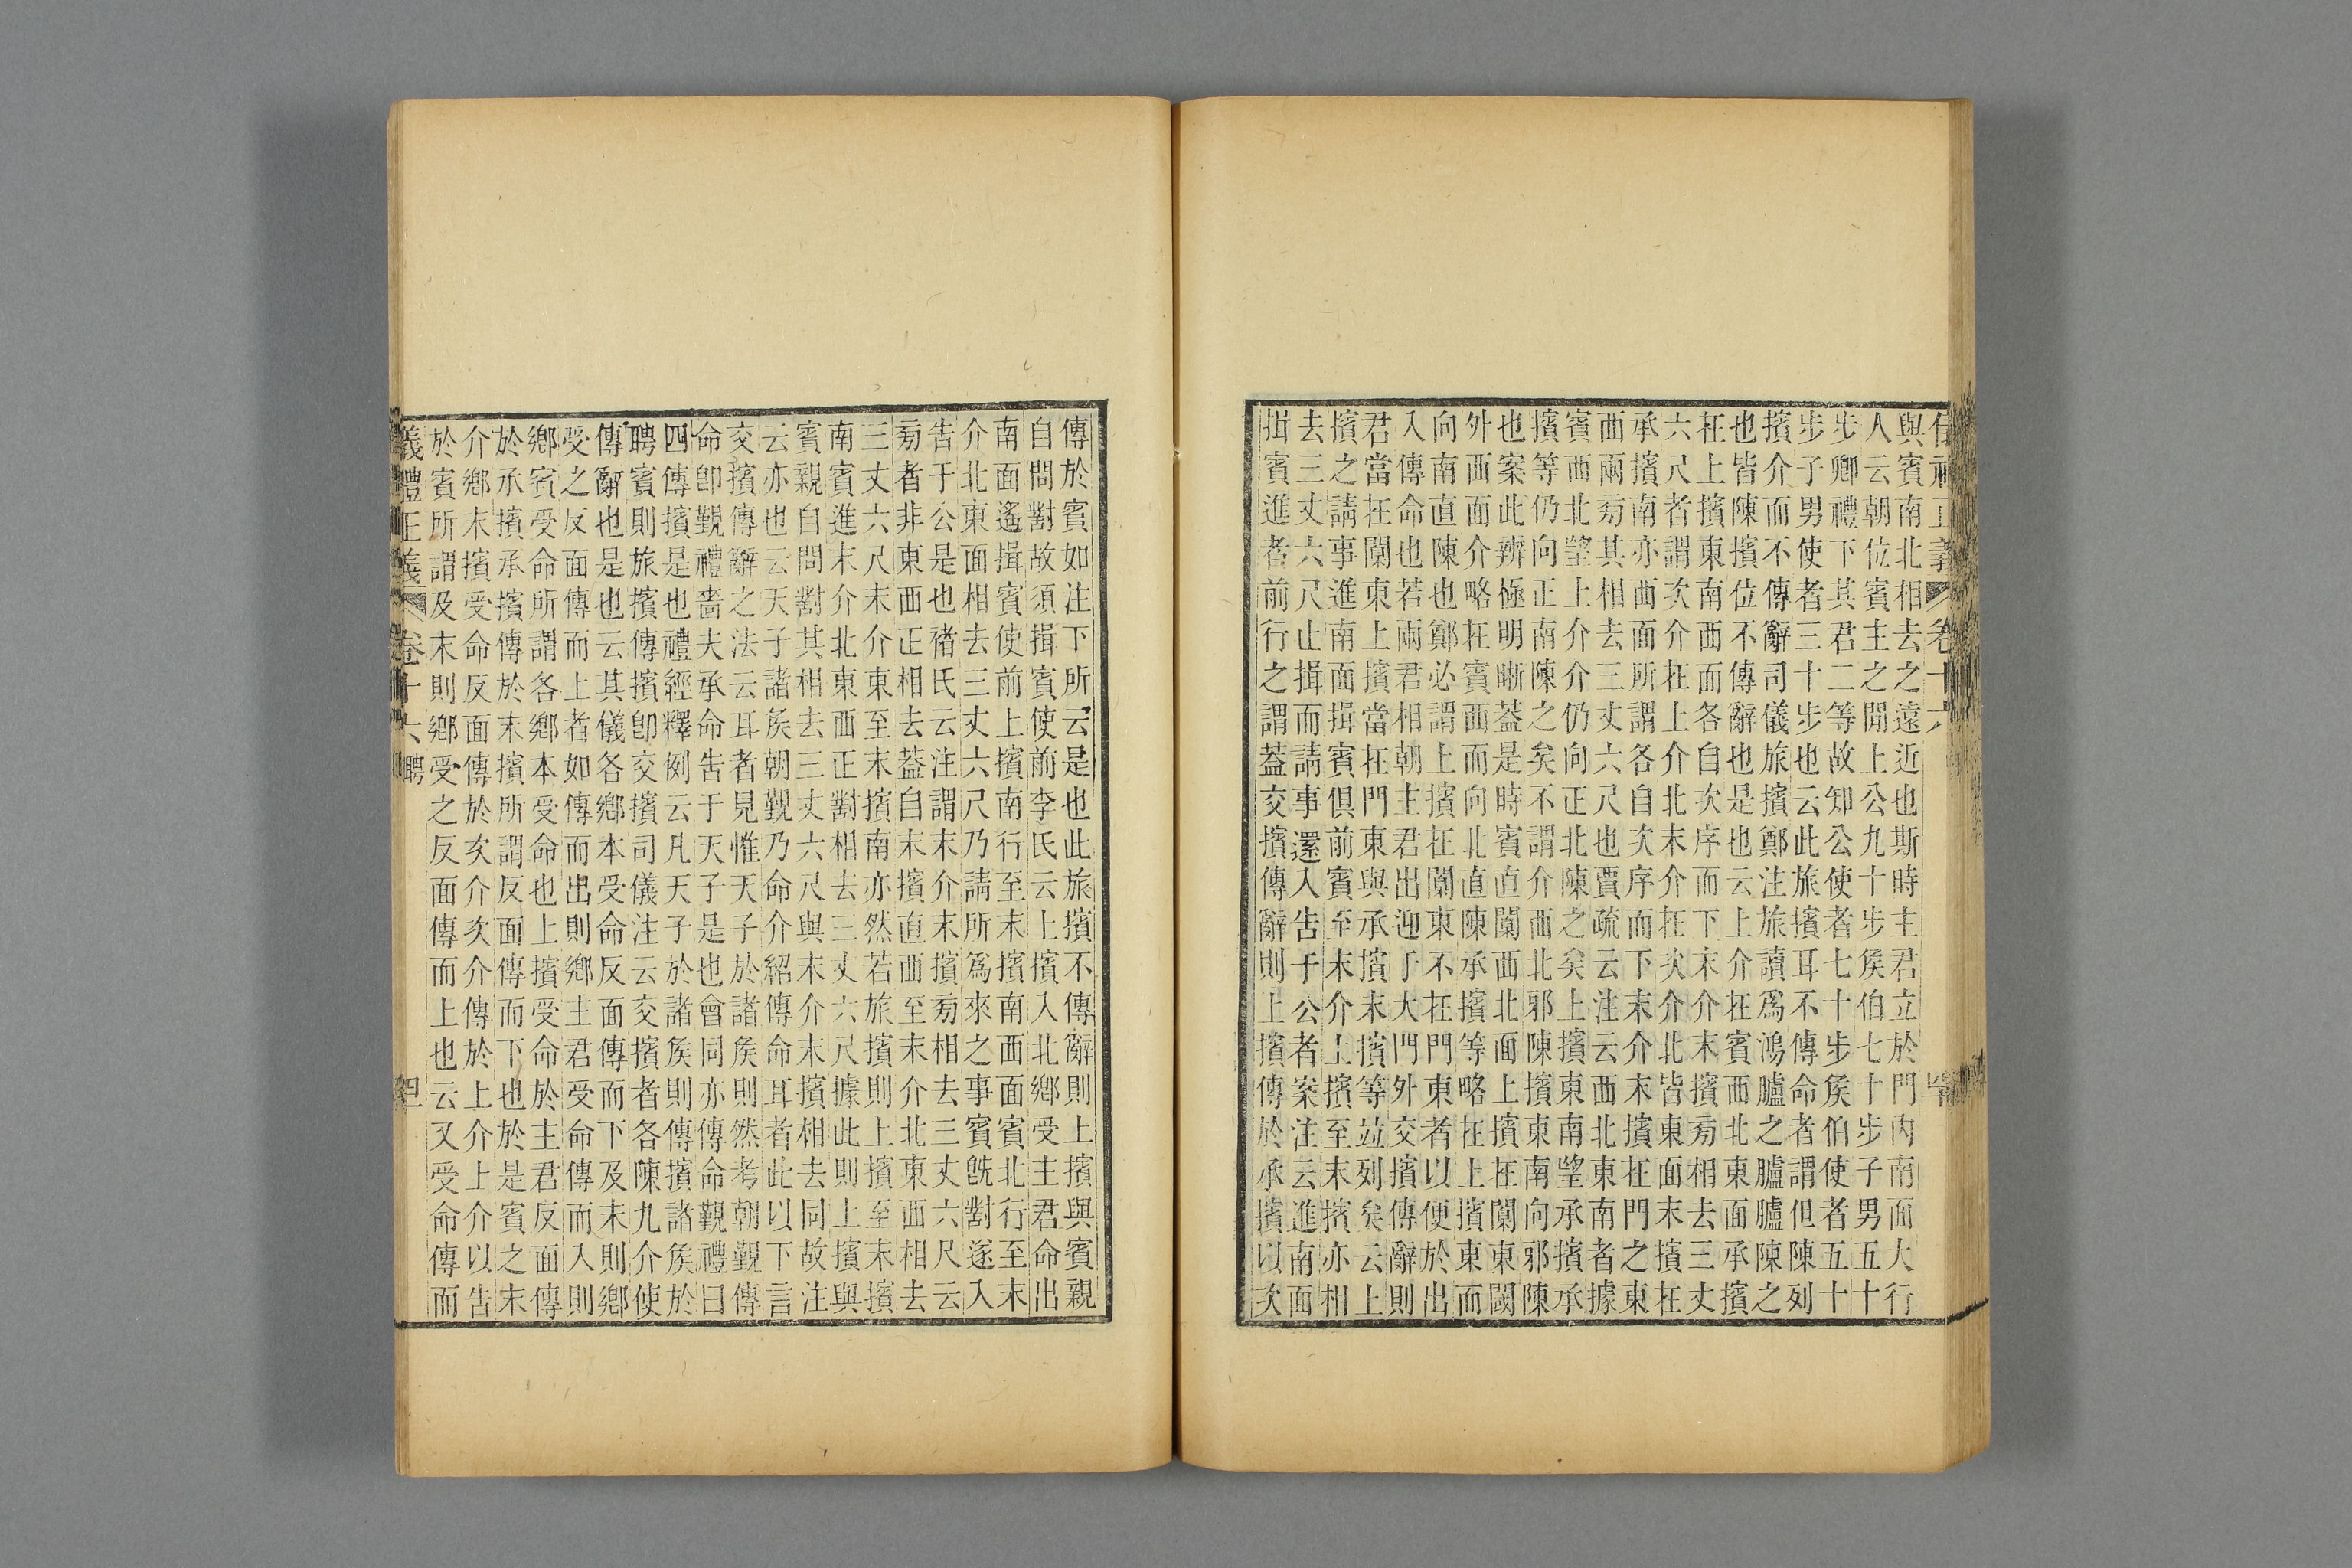 與賓南北相去之遠近也斯時主君立於門內南面大行
人云朝位賓主之閒上公九十步矦伯七十步子男五十
步卿禮下其君二等故知公使者七十步矦伯使者五十
步子男使者三十步也云此旅擯耳不傳命者謂但陳列
擯介而不傳辭司儀旅擯鄭注旅讀爲鴻臚之臚臚陳之
也皆陳擯位不傳辭也是也云上介在賓西北東面承擯
在上擯東南西面各自次序而下末介末擯旁相去三丈
六尺者謂次介在上介北末介在次介北皆東面末擯在
承擯南亦西面所謂各自次序而下末介末擯在門之東
西兩旁其相去三丈六尺也賈疏云注云西北東南者據
賓西北望上介介仍向正北陳之矣上擯東南望承擯承
擯等仍向正南陳之矣不謂介西北邪陳擯東南向邪陳
也案此辨極明晰蓋是時賓直闑西北面上擯在闑東閾
外西面介略在賓西而向北直陳承擯等略在上擯東而
向南直陳也鄭必謂上擯在闑東不在門東者以便於出
入傳命也若兩君相朝主君出迎于大門外交擯傳辭則
君當在闑東上擯當在門東與承擯末擯等竝列矣云上
擯之請事進南面揖賓俱前賓至末介上擯至末擯亦相
去三丈六尺止揖而請事還入告于公者案注云進南面
揖賓進者前行之謂蓋交擯傳辭則上擯傳於承擯以次
傳於賓如注下所云是也此旅擯不傳辭則上擯與賓親
自問對故須揖賓使前李氏云上擯入北鄉受主君命出
南面遙揖賓使前上擯南行至末擯南西面賓北行至末
介北東面相去三丈六尺乃請所爲來之事賓旣對遂入
告于公是也褚氏云注謂末介末擯旁相去三丈六尺云
旁者非東西正相去蓋自末擯直西至末介北東西相去
三丈六尺末介東至末擯南亦然若旅擯則上擯至末擯
南賓進末介北東西正對相去三丈六尺據此則上擯與
賓親自問對其相去三丈六尺與末介末擯相去同故注
云亦也云天子諸矦朝覲乃命介紹傳命耳者此以下言
交擯傳辭之法云耳者見惟天子於諸矦則然考朝覲傳
命卽覲禮嗇夫承命告于天子是也會同亦傳命覲禮曰
四傳擯是也禮經釋例云凡天子於諸矦則傳擯諸矦於
聘賓則旅擯傳擯卽交擯司儀注云交擯者各陳九介使
傳辭也是也云其儀各鄉本受命反面傳而下及末則鄉
受之反面傳而上者如傳而出則鄉主君受命傳而入則
鄉賓受命所謂各鄉本受命也上擯受命於主君反面傳
於承擯承擯傳於末擯所謂反面傳而下也於是賓之末
介鄉末擯受命反面傳於次介次介傳於上介上介以告
於賓所謂及末則鄉受之反面傳而上也云又受命傳而
儀禮正義 卷十六聘